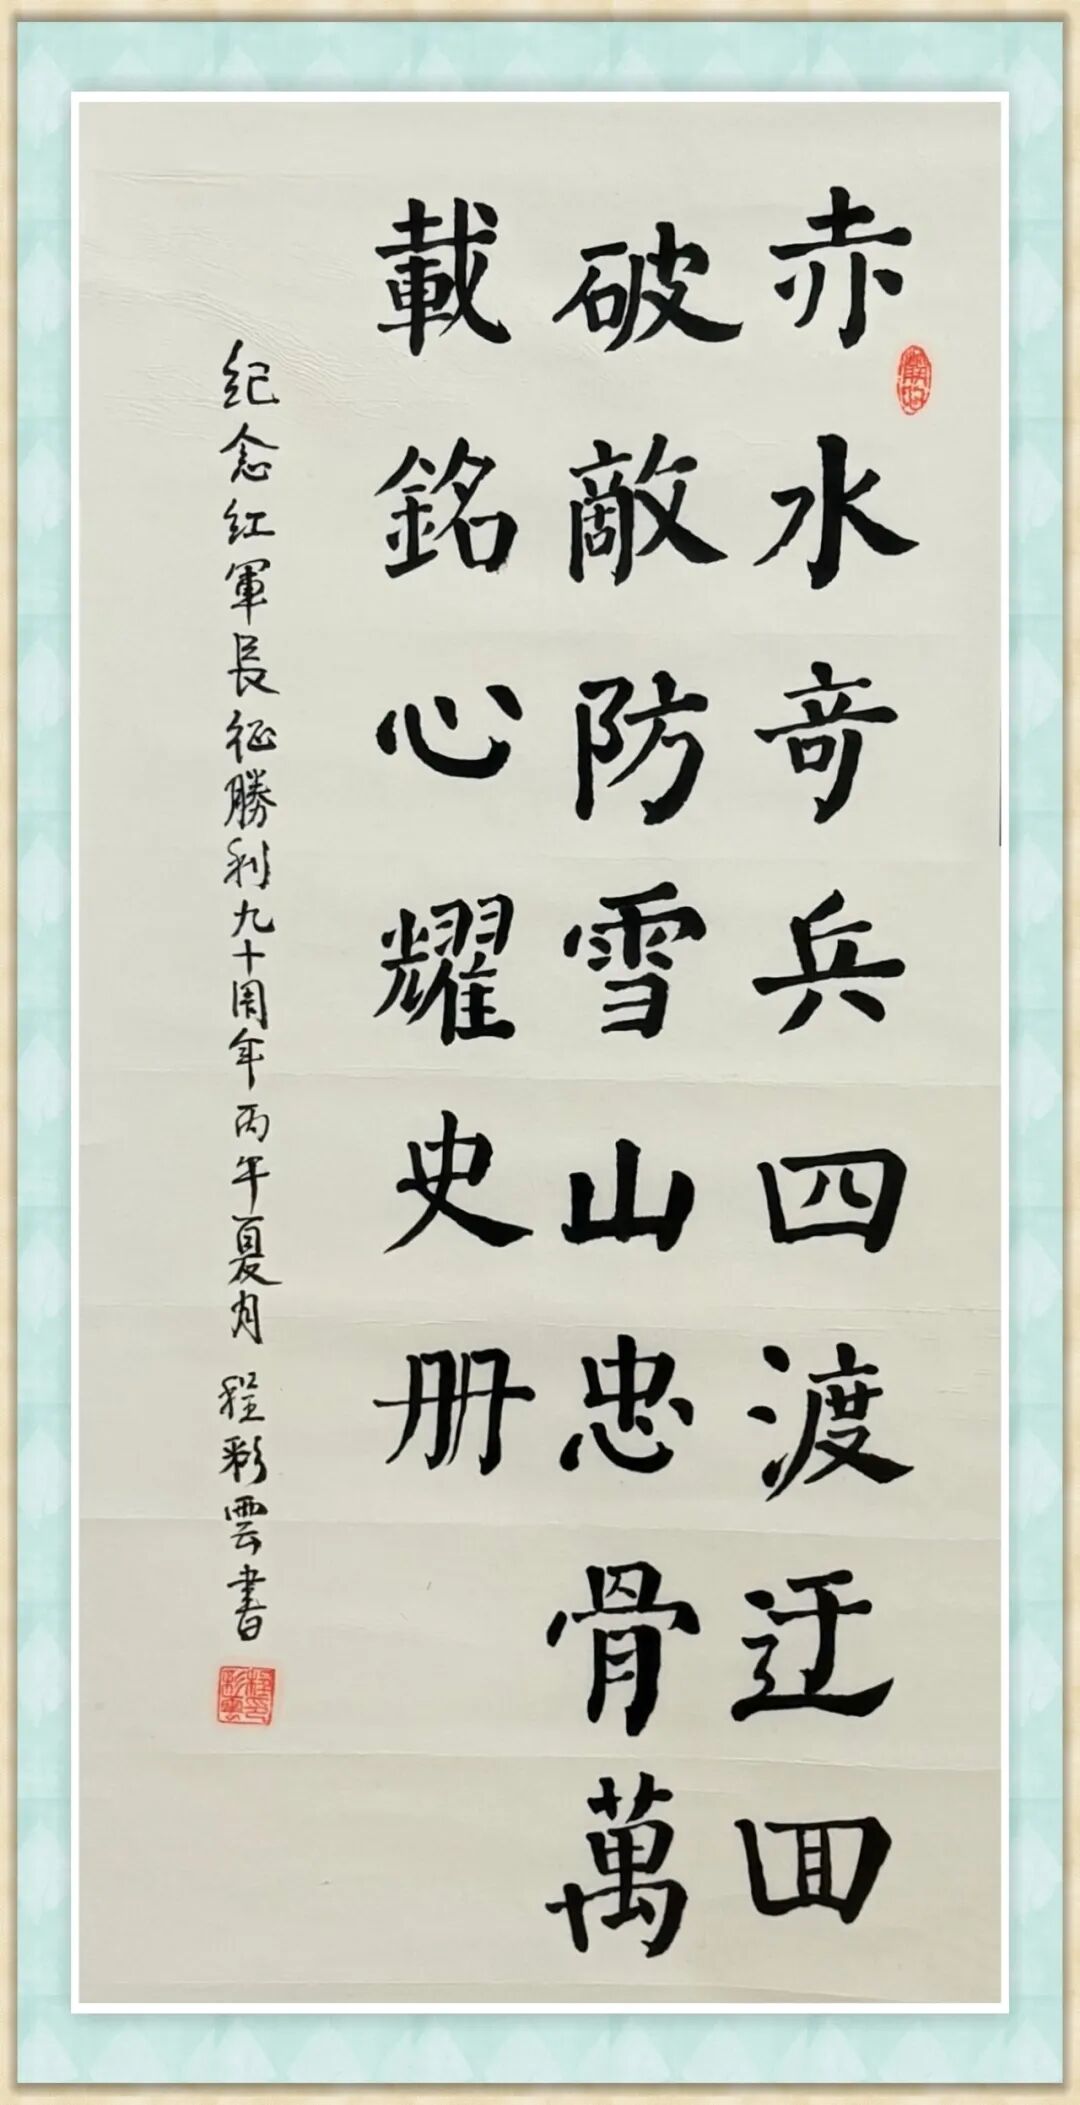 赤水竒兵四渡迂回
破敵防雪山忠骨萬
載銘心耀史册
纪念红軍長征勝利九十周年丙午夏月 程彩雲書